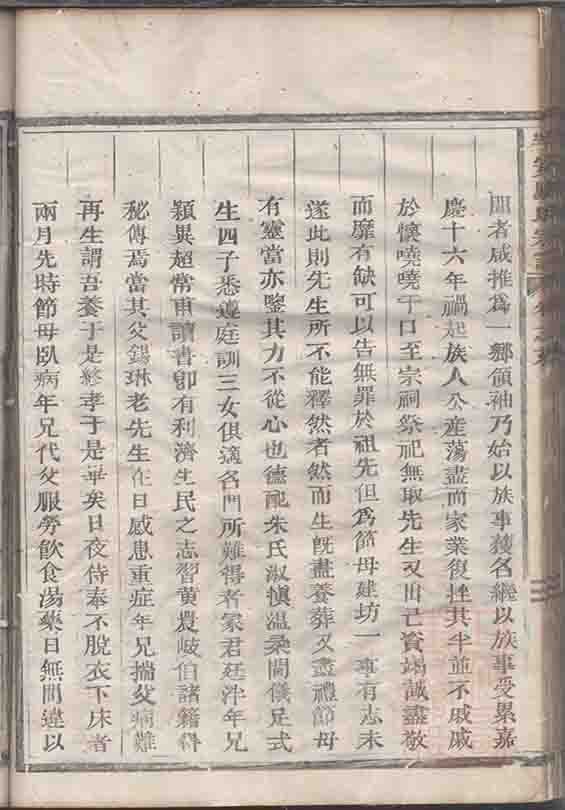 聞者咸推爲一鄉領袖乃始以族事獲名繼以族事受累嘉
慶十六年禍起族人公產蕩盡而家業復挫其半並不戚戚
於懷嘵嘵于口至宗祠祭祀無取先生又出己資竭誠盡敬
而靡有缺可以告無罪於祖先但爲節母建坊一事有志未
遂此則先生所不能釋然者然而生旣盡養葬又盡禮節母
有靈當亦鑒其力不從心也德配朱氏淑愼溫柔閫儀足式
生四子悉遵庭訓三女俱適名門所難得者冢君廷泮年兄
穎異超常甫讀書卽有利濟生民之志習黃農岐伯諸籍得
秘傳焉當其父錫琳老先生在日感患重症年兄揣父病難
再生謂吾養于是終孝于是畢矣日夜侍奉不脫衣下床者
兩月先時節母臥病年兄代父服勞飲食湯藥日無間違以